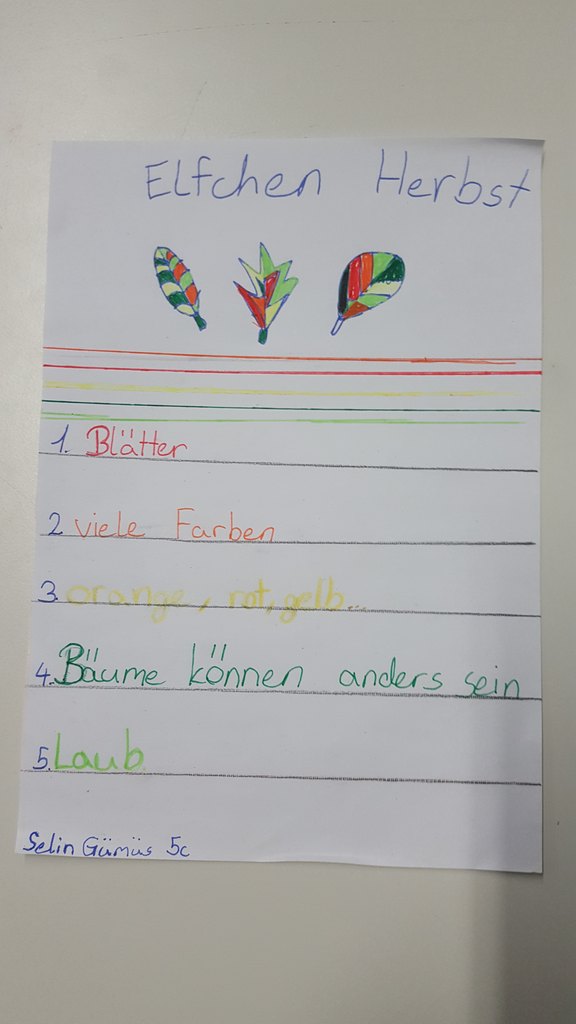 Elfchen Herbst
1. Blätter
2. viele Farben
3. orange, rot, gelb...
4. Bäume können anders sein
5. Laub
Selin Gümüs 5c